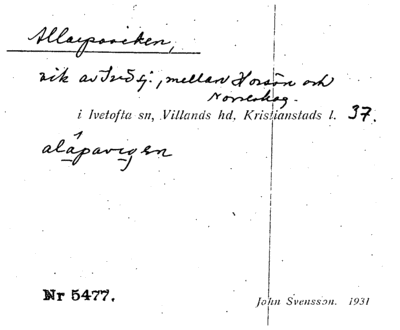 Allarpsviken,
vik av Ivösj:, mellan Horsön och
Norreskog.
i Ivetofta sn, Villands hd, Kristianstads l. 37.
alápavigen
Nr 5477.
John Svensson. 1931